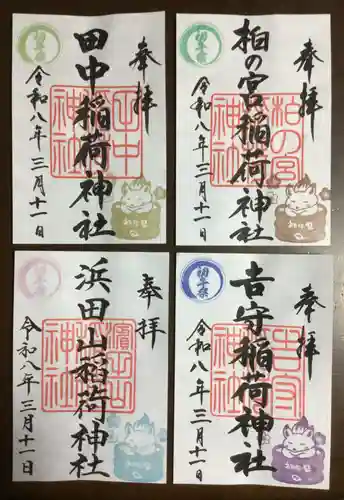 奉拝
田中稲荷神社
田中
神社
令和八年三月十一日
初午祭
奉拝
柏の宮稲荷神社
柏の宮
神社
令和八年三月十一日
初午祭
奉拝
浜田山稲荷神社
濱田山
神社
令和八年三月十一日
奉拝
吉守稲荷神社
吉守
神社
令和八年三月十一日